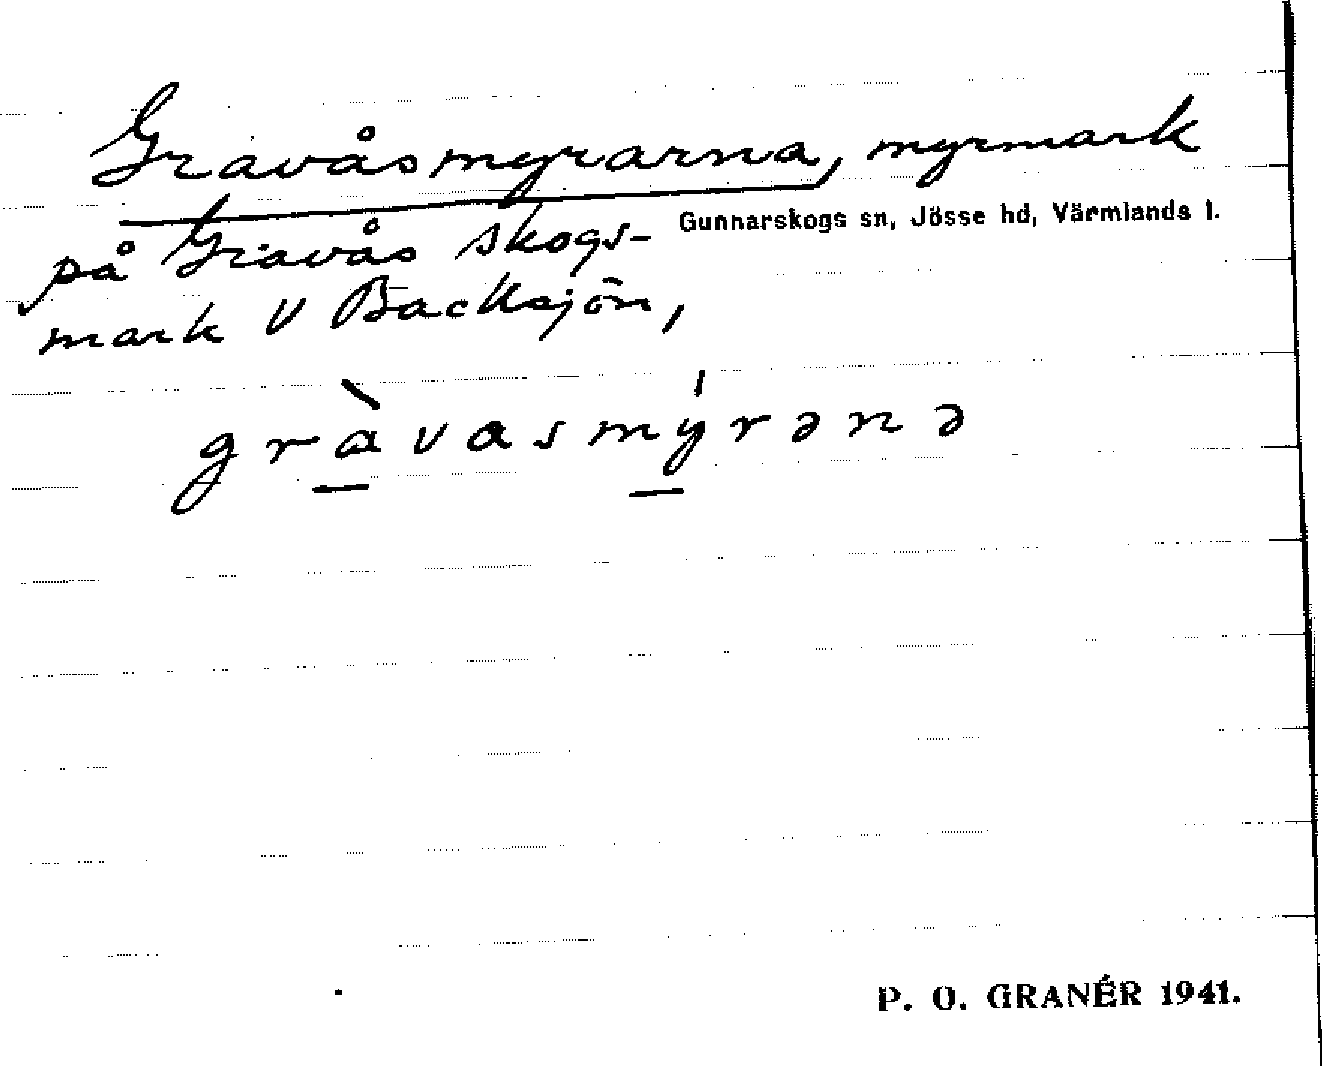 Gravåsmyrarna, myrmark
Gunnarskogs sn, Jösse hd, Värmlands l.
på Gravås skogs-
mark V Backsjön,
gràvasmýrənə
P. O. GRANÉR 1941.